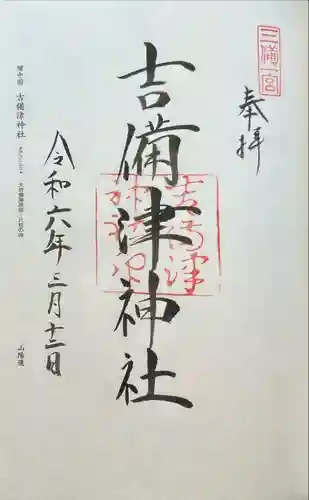 三備一宮
奉拝
吉備津神社
令和六年三月十二日
吉備津神社
山陽道